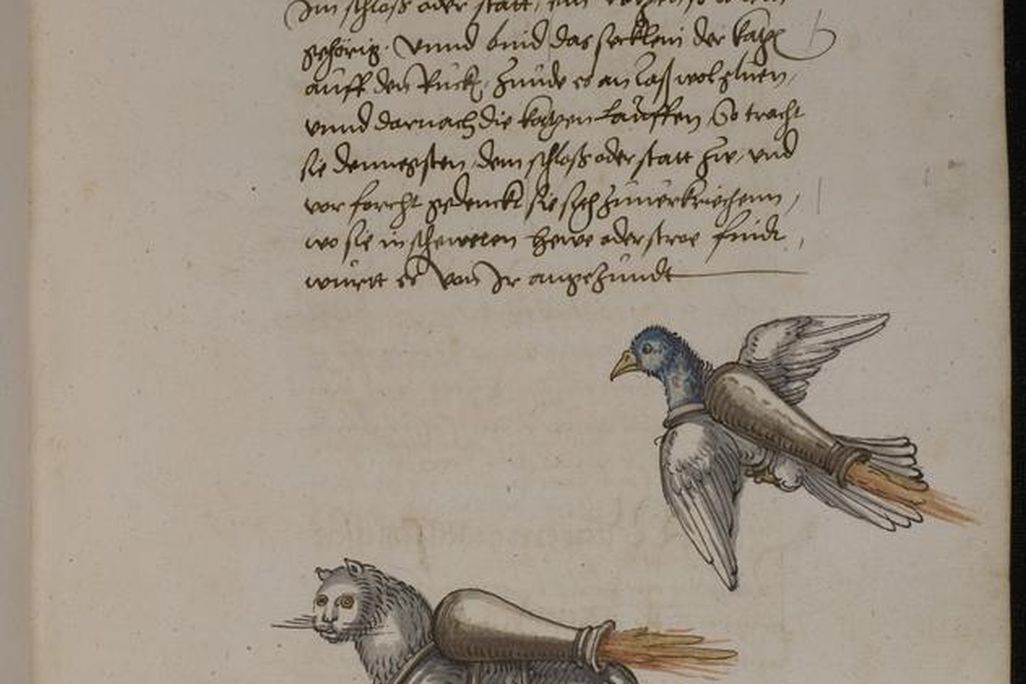 Im schloß oder statt, ein
gehörig. Vnnd bind das secklein der katzen
auff den Ruck, Zunde es an laß wol gluen,
vnnd darnach die katzen lauffen, So tracht
sie dem negsten, dem schloß oder statt zu, vnd
vor forcht gedenckt sie sich zuuerkriechenn,
wo sie in schewren hewe oder stroe findt,
württ es von Ir angezündt